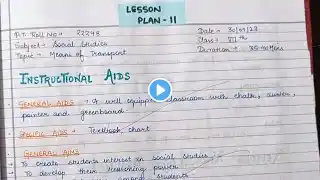 LESSON
PLAN - 11
P.T. Roll No = 22248
Subject = Social Studies
Topic = Means of Transport
Date = 30/01/23
Class = VIth
Duration = 35-40 Mins
INSTRUCTIONAL AIDS
GENERAL AIDS - A well equipped classroom with chalk, duster,
pointer and greenboard.
SPECIFIC AIDS - Textbook, chart
GENERAL AIMS
To create students interest in social studies
To develop their reasoning power
among students